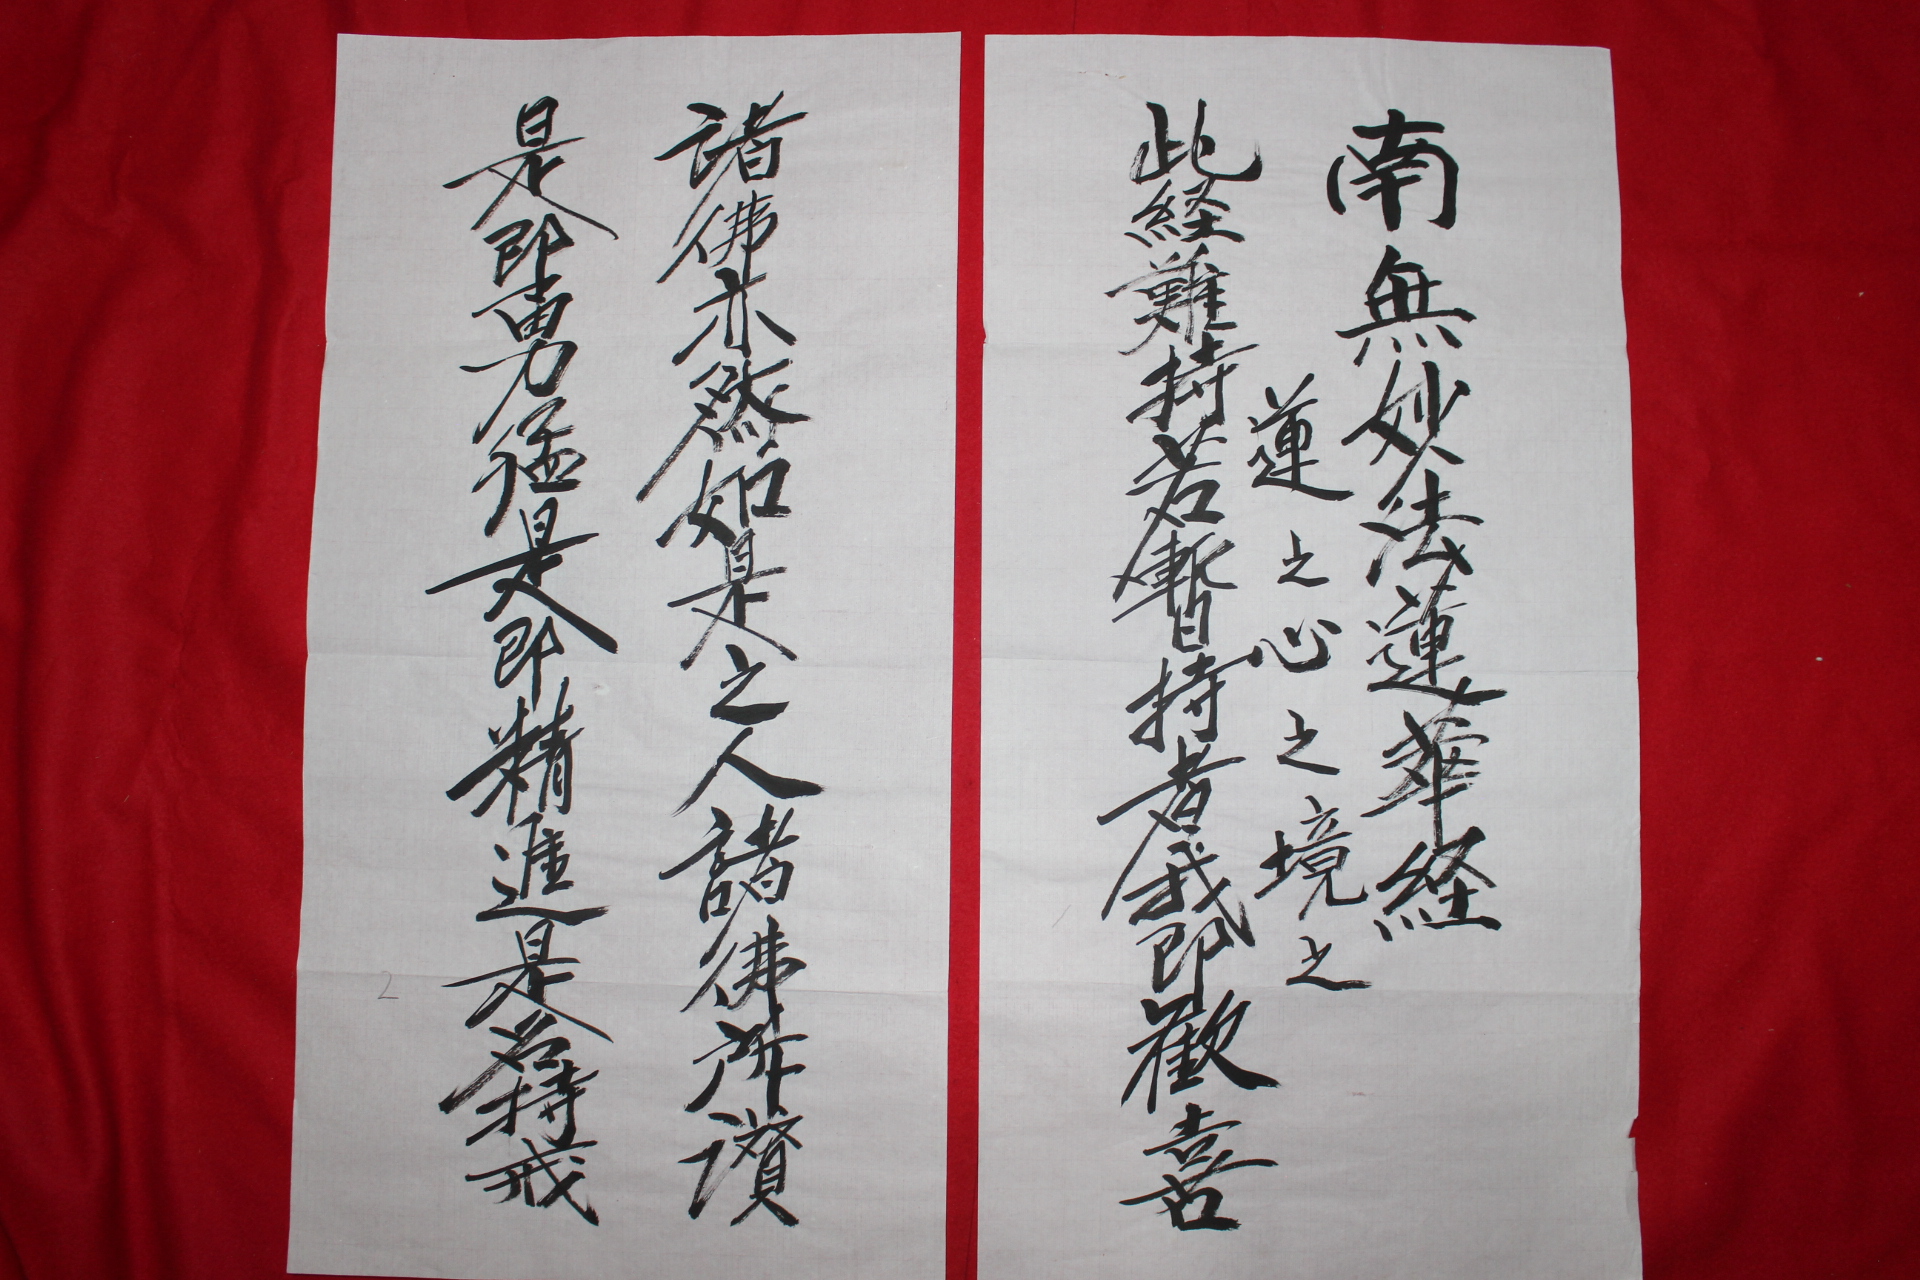 南無妙法蓮華経
蓮之心之境之
此経難持若暫持者我即歓喜
諸佛亦然如是之人諸佛所讃
是即勇猛是即精進是名持戒
2